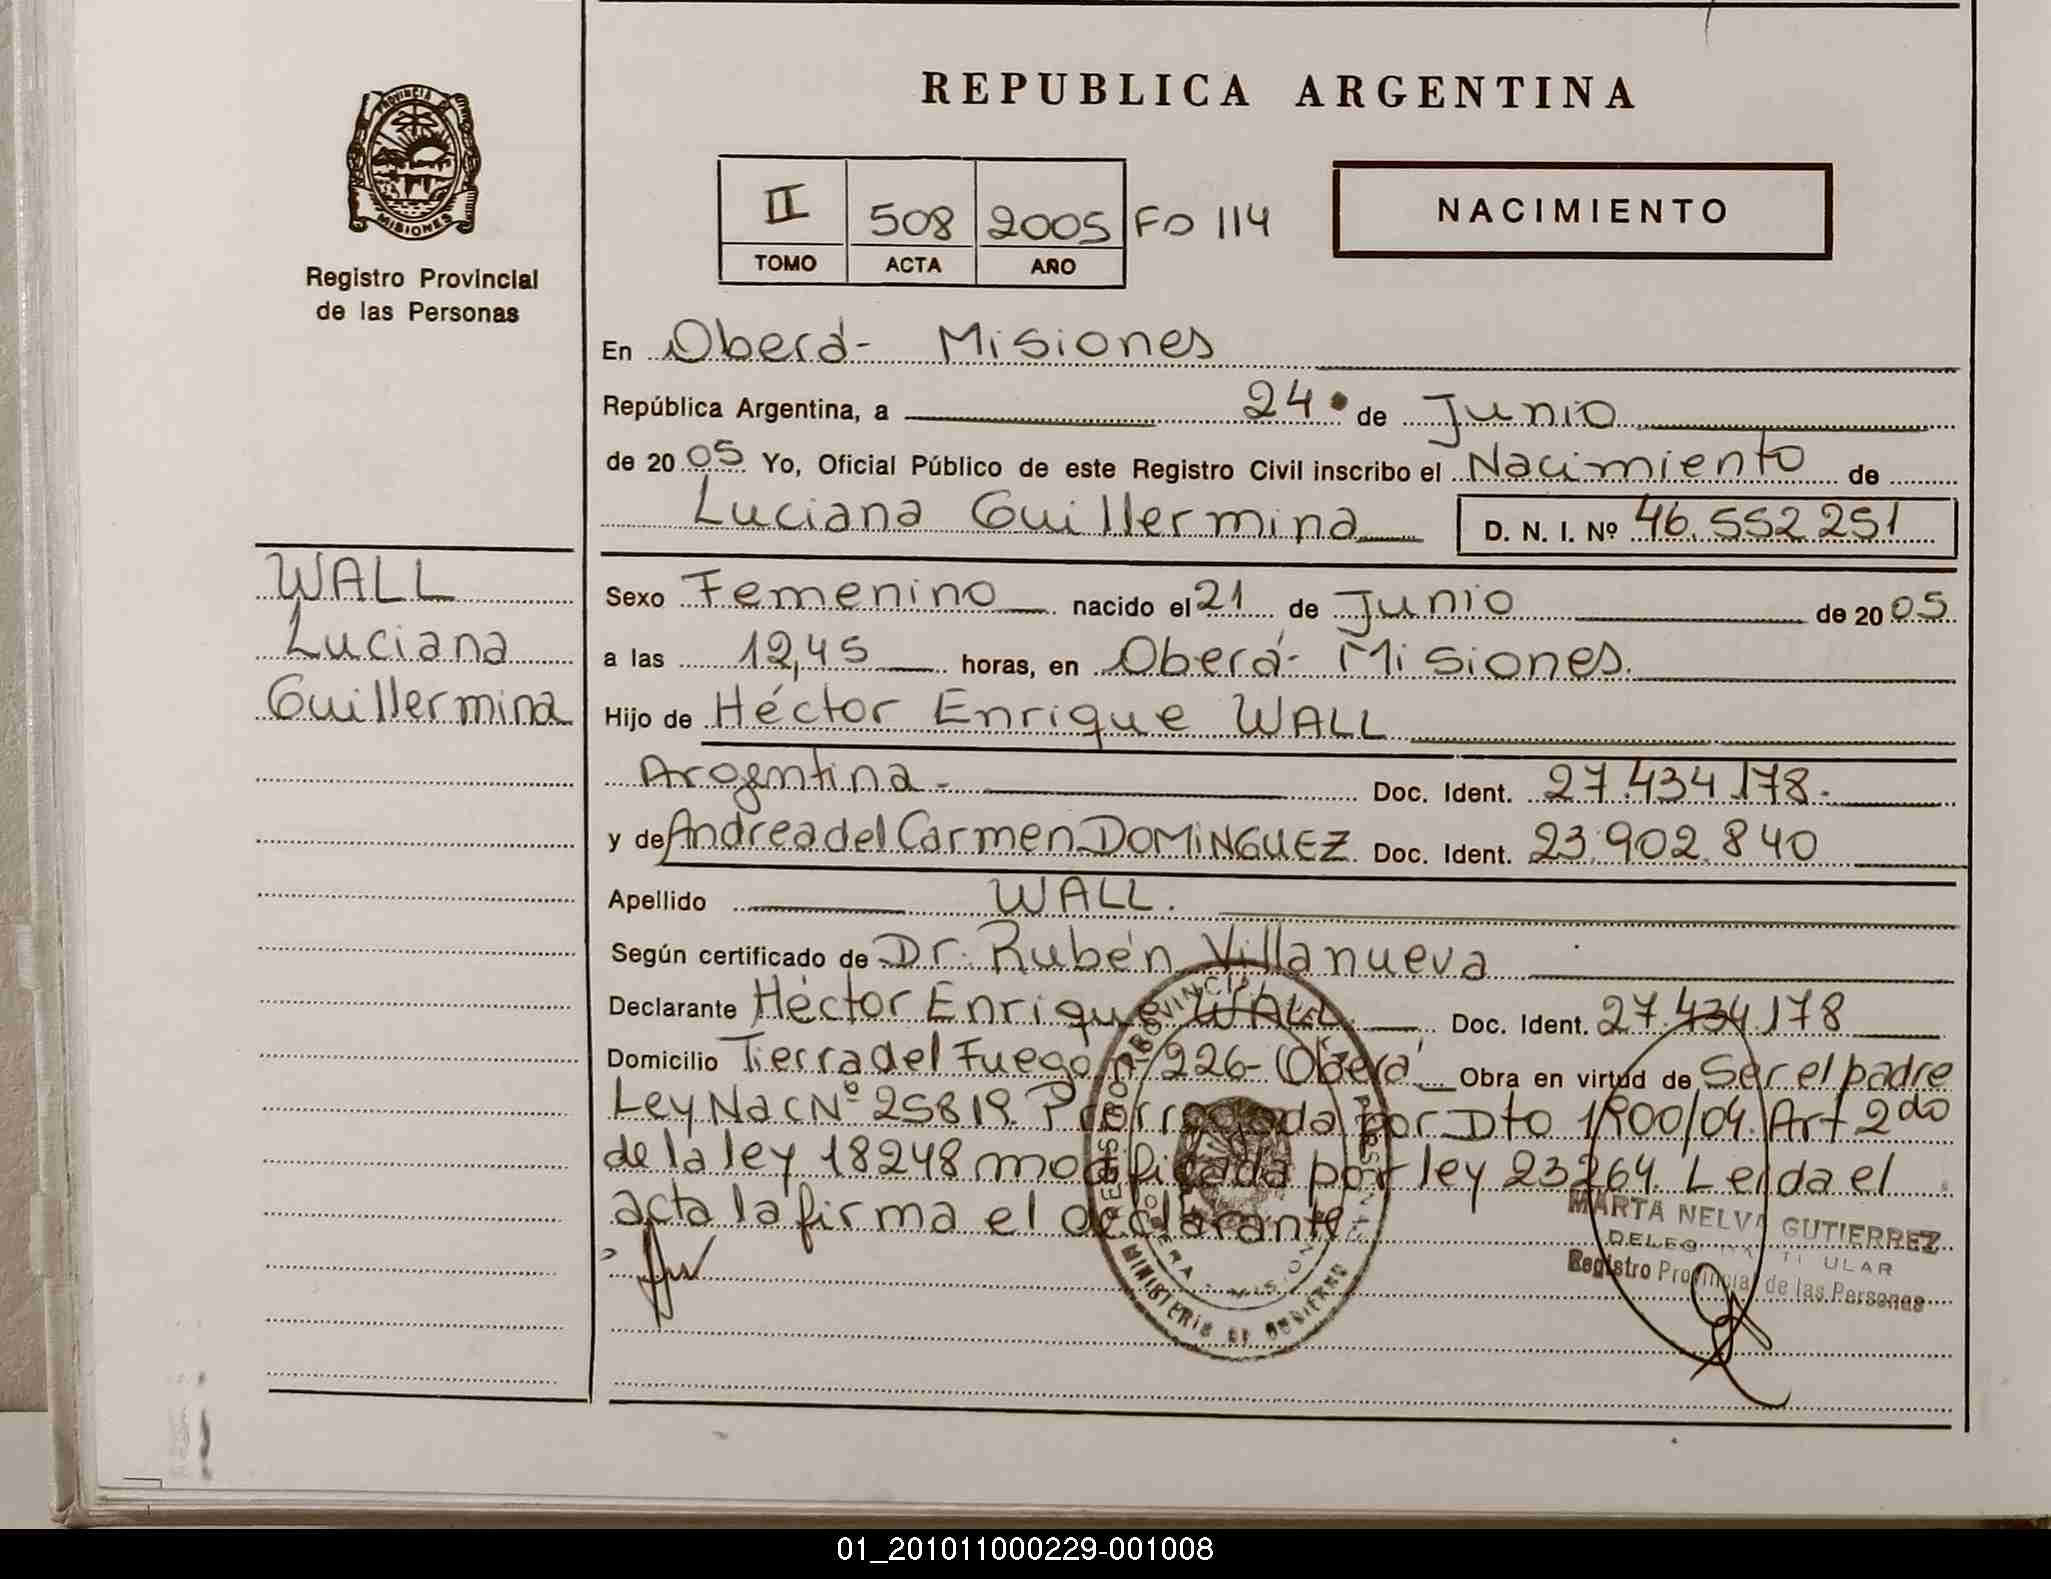 REPUBLICA ARGENTINA
PROVINCIA DE
MISIONES
Registro Provincial
de las Personas
II 508 2005 Fo 114
TOMO ACTA AÑO
NACIMIENTO
En Oberá- Misiones
República Argentina, a 24 de Junio
de 2005 Yo, Oficial Público de este Registro Civil inscribo el Nacimiento de
Luciana Guillermina D. N. I. Nº 46.552 251
WALL
Luciana
Guillermina
Sexo Femenino nacido el 21 de Junio de 2005
a las 12,45 horas, en Oberá- Misiones.
Hijo de Héctor Enrique WALL
Argentina- Doc. Ident. 27.434.178.
y de Andrea del Carmen DOMINGUEZ Doc. Ident. 23.902.840
Apellido WALL.
Según certificado de Dr. Rubén Villanueva
Declarante Héctor Enrique WALL Doc. Ident. 27.434.178
Domicilio Tierra del Fuego nº 226- Oberá Obra en virtud de Ser el padre
Ley Nac Nº 25819. Prorrogada por Dto 1900/04. Art 2do
de la ley 18248 modificada por ley 23264. Leida el
acta la firma el declarante
MARTA NELVA GUTIERREZ
DELEGADA TITULAR
Registro Provincial de las Personas
MINISTERIO DE GOBIERNO
01_201011000229-001008